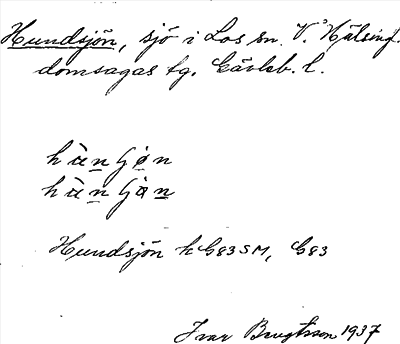 Hundsjön, sjö i Los sn. V. Hälsing.
domsagas tg. Gävleb. l.
hùnʃøn
hùnʃan
Hundsjön h G83SM, G83
Ivar Bengtsson 1937